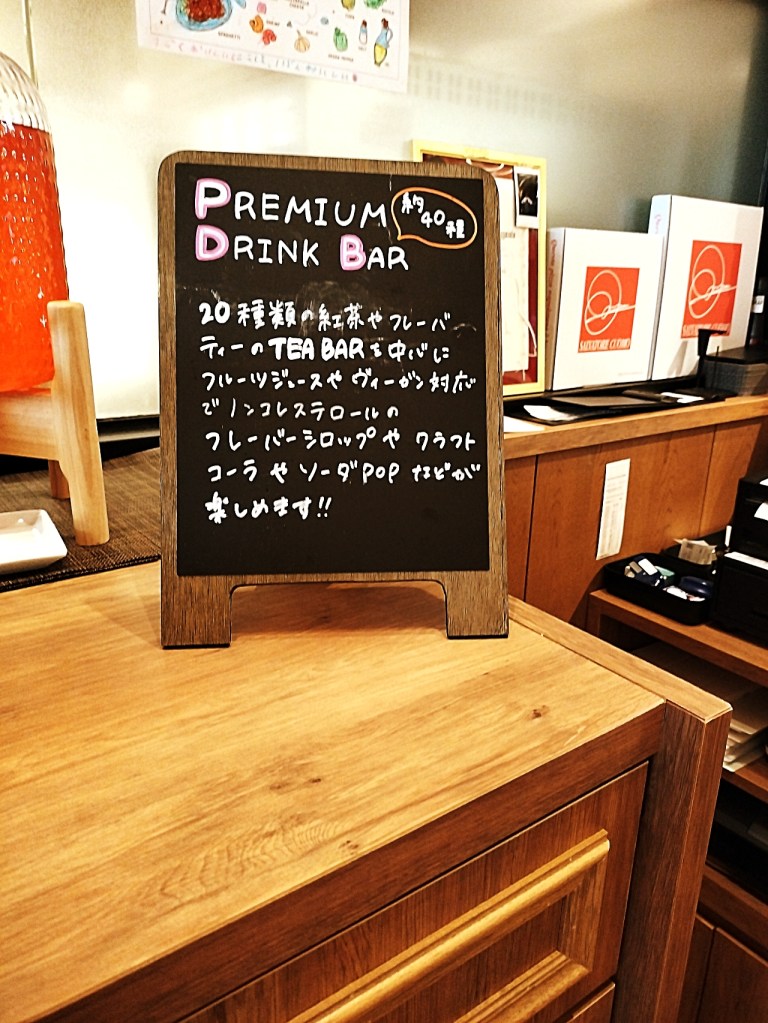 PREMIUM
約40種
DRINK BAR
20種類の紅茶やフレーバ
ティーのTEA BARを中心に
フルーツジュースやヴィーガン対応
でノンコレステロールの
フレーバーシロップや クラフト
コーラやソーダPOPなどが
楽しめます!!
SALVATORE CUOMO
SALVATORE CUOMO